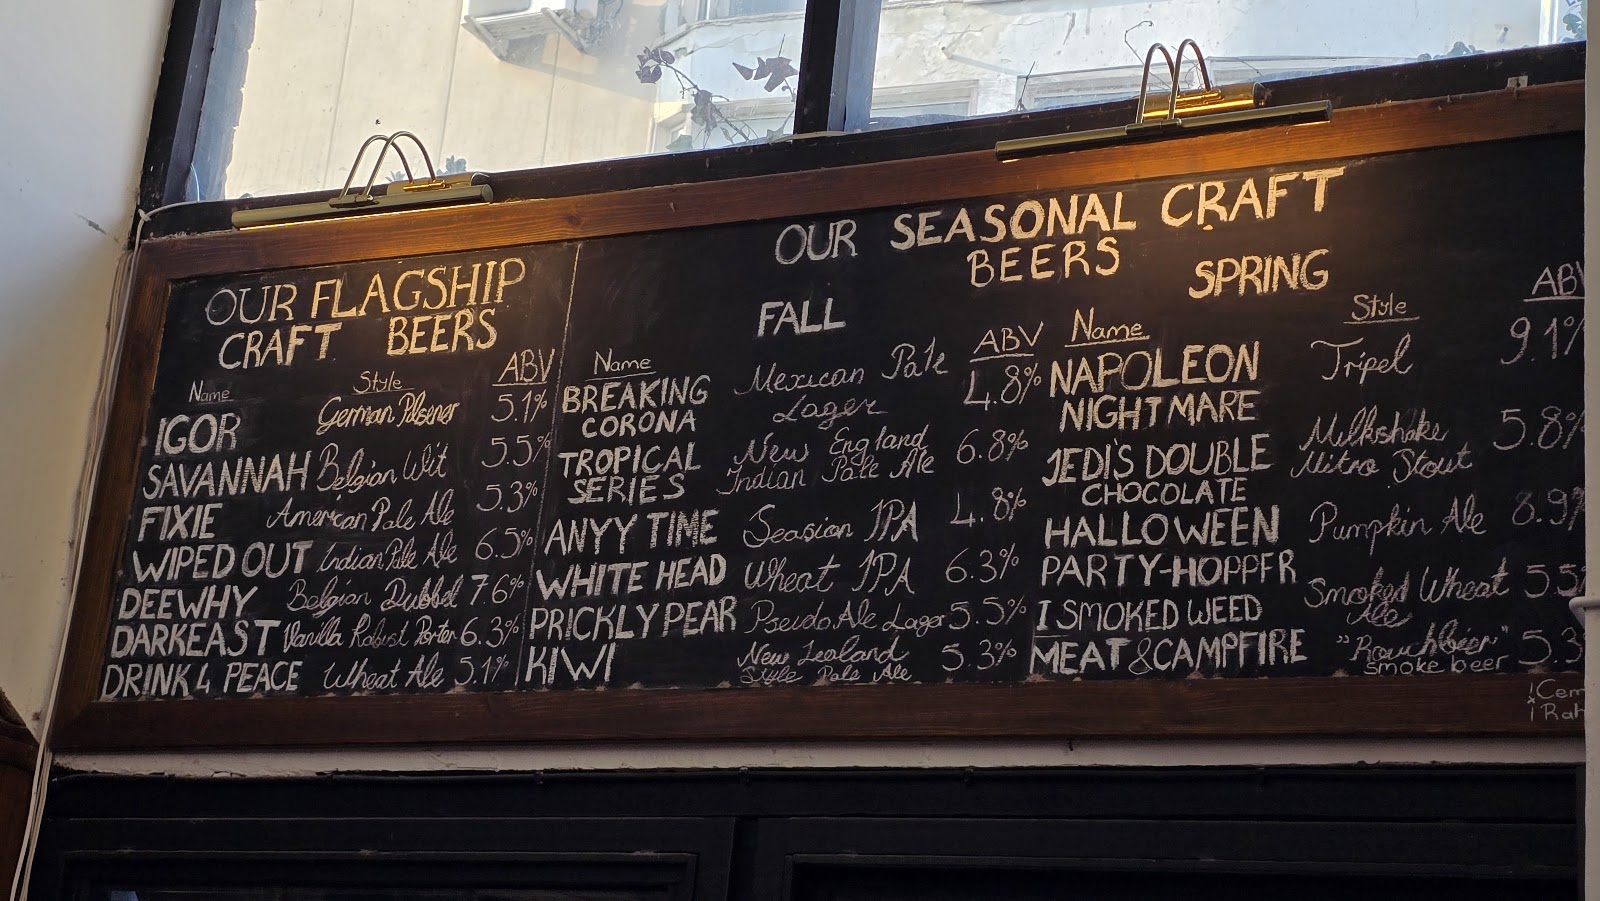 OUR FLAGSHIP
CRAFT BEERS
Name Style ABV
IGOR German Pilsener 5.1%
SAVANNAH Belgian Wit 5.5%
FIXIE American Pale Ale 5.3%
WIPED OUT Indian Pale Ale 6.5%
DEEWHY Belgian Dubbel 7.6%
DARKEAST Vanilla Robust Porter 6.3%
DRINK 4 PEACE Wheat Ale 5.1%
OUR SEASONAL CRAFT
BEERS
FALL
Name ABV
BREAKING Mexican Pale 4.8%
CORONA Lager
TROPICAL New England 6.8%
SERIES Indian Pale Ale
ANYY TIME Seasion IPA 4.8%
WHITE HEAD Wheat IPA 6.3%
PRICKLY PEAR Pseudo Ale Lager 5.5%
KIWI New Zealand 5.3%
Style Pale Ale
SPRING
Name Style ABV
NAPOLEON Tripel 9.1%
NIGHTMARE
JEDI'S DOUBLE Milkshake 5.8%
CHOCOLATE Nitro Stout
HALLOWEEN Pumpkin Ale 8.9%
PARTY-HOPPER
I SMOKED WEED Smoked Wheat 5.5
Ale
MEAT & CAMPFIRE "Rauchbier" 5.3
smoke beer